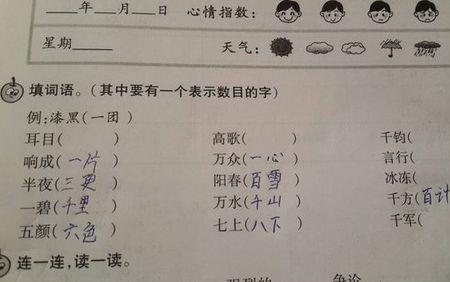 ____年____月____日 心情指数:
星期____ 天气:
填词语。(其中要有一个表示数目的字)
例:漆黑(一团)
耳目( ) 高歌( ) 千钧(
响成(一片) 万众(一心) 言行(
半夜(三更) 阳春(百雪) 冰冻(
一碧(千里) 万水(千山) 千方(百计
五颜(六色) 七上(八下) 千军(
连一连,读一读。